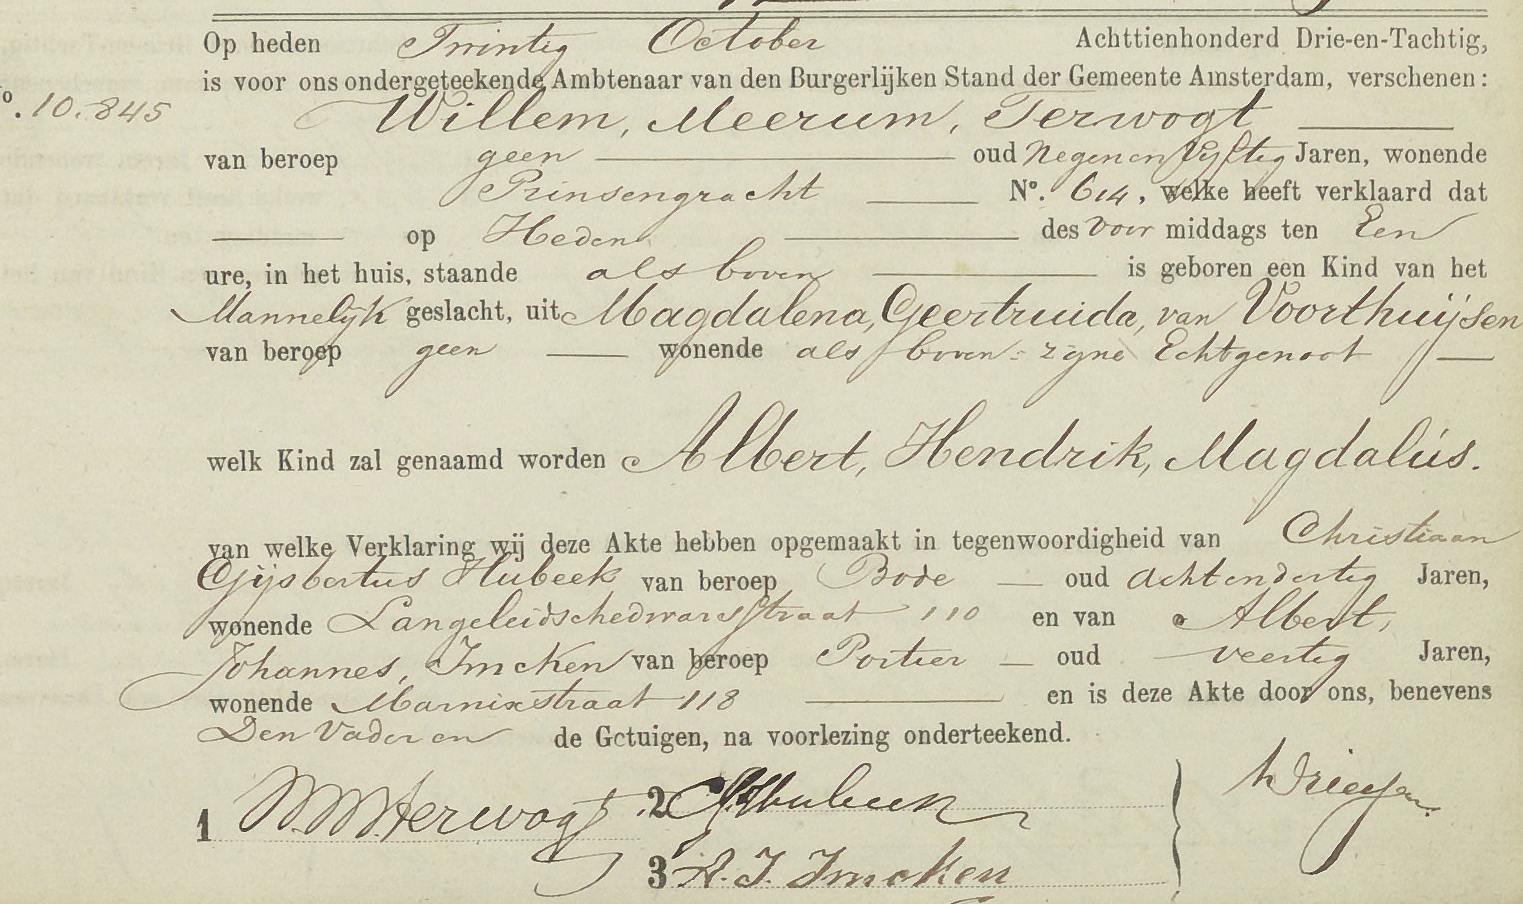 Op heden Twintig October Achttienhonderd Drie-en-Tachtig,
is voor ons ondergeteekende Ambtenaar van den Burgerlijken Stand der Gemeente Amsterdam, verschenen:
o. 10.845 Willem, Meerum, Terwogt
van beroep geen oud Negenenvijftig Jaren, wonende
Prinsengracht No. 614, welke heeft verklaard dat
op Heden des voor middags ten Een
ure, in het huis, staande als boven is geboren een Kind van het
Mannelijk geslacht, uit Magdalena, Geertruida, van Voorthuijsen
van beroep geen wonende als boven = zijne Echtgenoot
welk Kind zal genaamd worden Albert, Hendrik, Magdalus.
van welke Verklaring wij deze Akte hebben opgemaakt in tegenwoordigheid van Christiaan
Gijsbertus Hubeek van beroep Bode oud achtendertig Jaren,
wonende Langeleidschedwarsstraat 110 en van Albert,
Johannes, Imcken van beroep Portier oud veertig Jaren,
wonende Marnixstraat 118 en is deze Akte door ons, benevens
Den Vader en de Getuigen, na voorlezing onderteekend.
1 W.M.Terwogt 2 C.G.Hubeek
3 A. J. Imcken